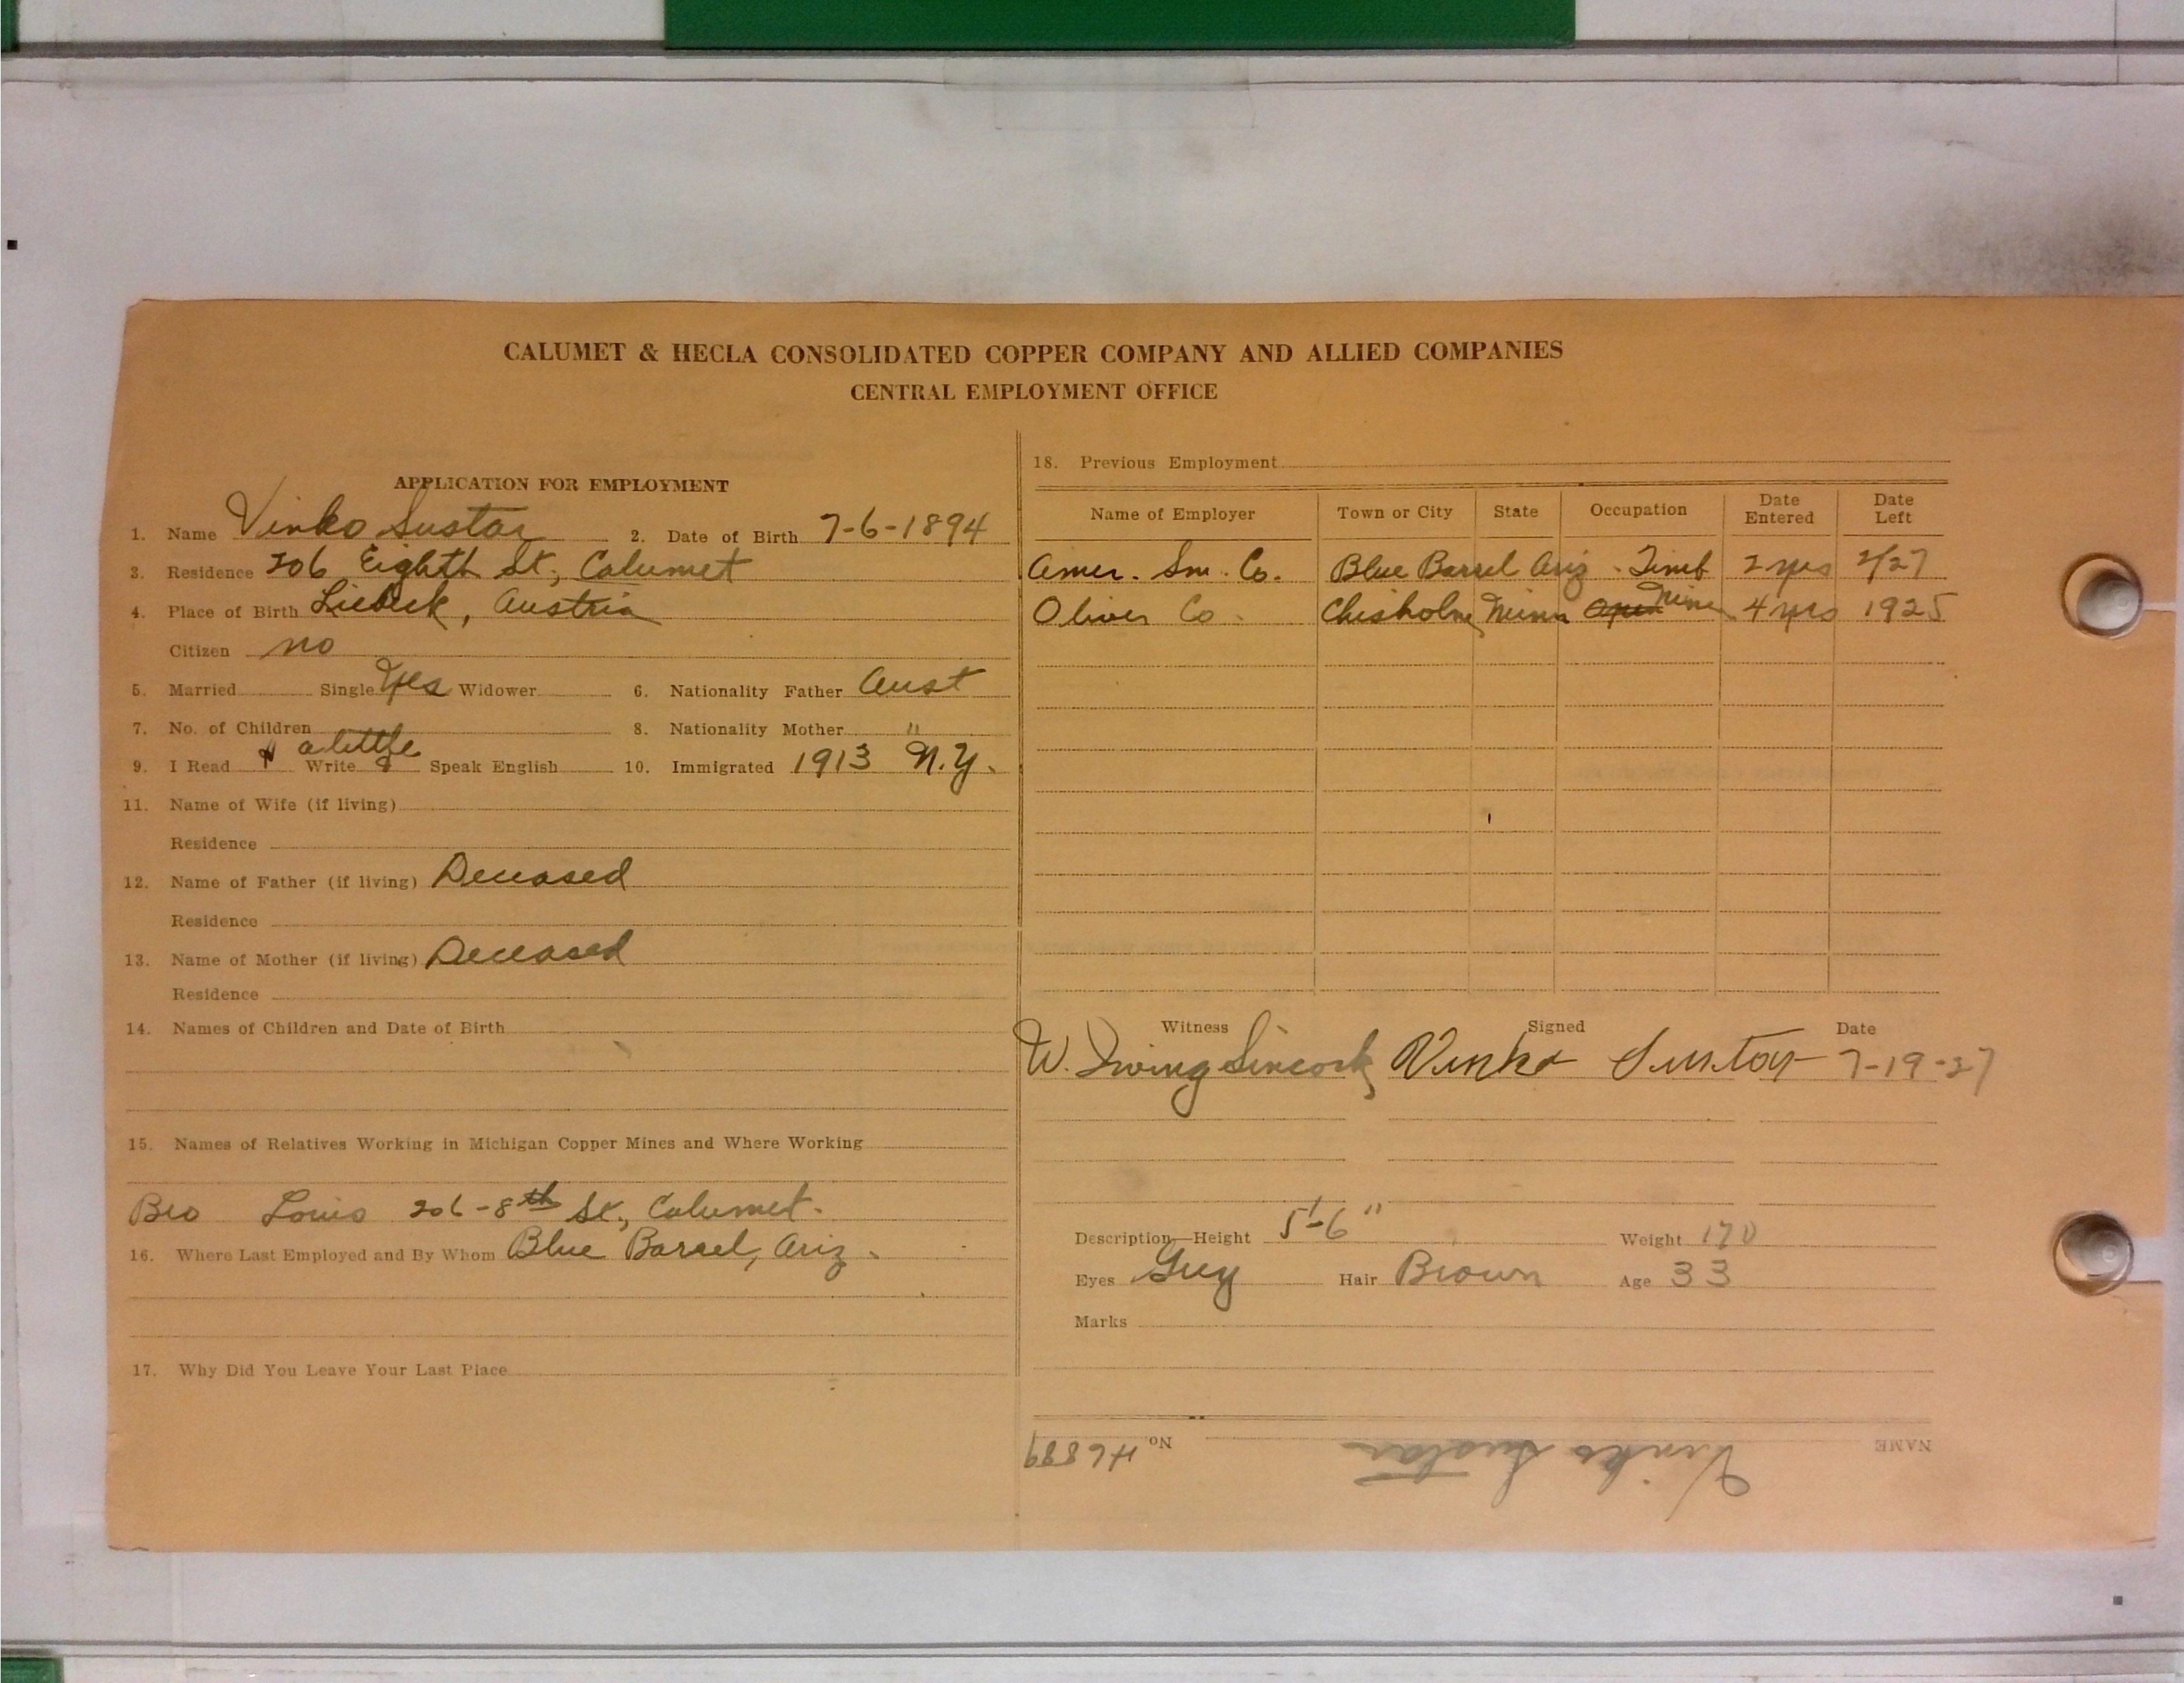 CALUMET & HECLA CONSOLIDATED COPPER COMPANY AND ALLIED COMPANIES
CENTRAL EMPLOYMENT OFFICE
APPLICATION FOR EMPLOYMENT
1. Name Vinko Sustar 2. Date of Birth 7-6-1894
3. Residence 206 Eighth St., Calumet
4. Place of Birth Austria
Citizen no
5. Married Single Yes Widower 6. Nationality Father Aust
7. No. of Children 8. Nationality Mother "
a little
9. I Read Write Speak English 10. Immigrated 1913 N.Y.
11. Name of Wife (if living)
Residence
12. Name of Father (if living) Deceased
Residence
13. Name of Mother (if living) Deceased
Residence
14. Names of Children and Date of Birth
15. Names of Relatives Working in Michigan Copper Mines and Where Working
Bro Louis 206-8th St., Calumet.
16. Where Last Employed and By Whom Blue Barrel, Ariz.
17. Why Did You Leave Your Last Place
18. Previous Employment
Name of Employer Town or City State Occupation Date Entered Date Left
Amer. Sm. Co. Blue Barrel Ariz. Timb 2 yrs 2/27
Oliver Co. Chisholm Minn Mine 4 yrs 1925
Witness Signed Date
W. Irving Sincock Vinko Sustar 7-19-27
Description—Height 5'-6" Weight 170
Eyes Grey Hair Brown Age 33
Marks
NAME Vinko Sustar No. 46889